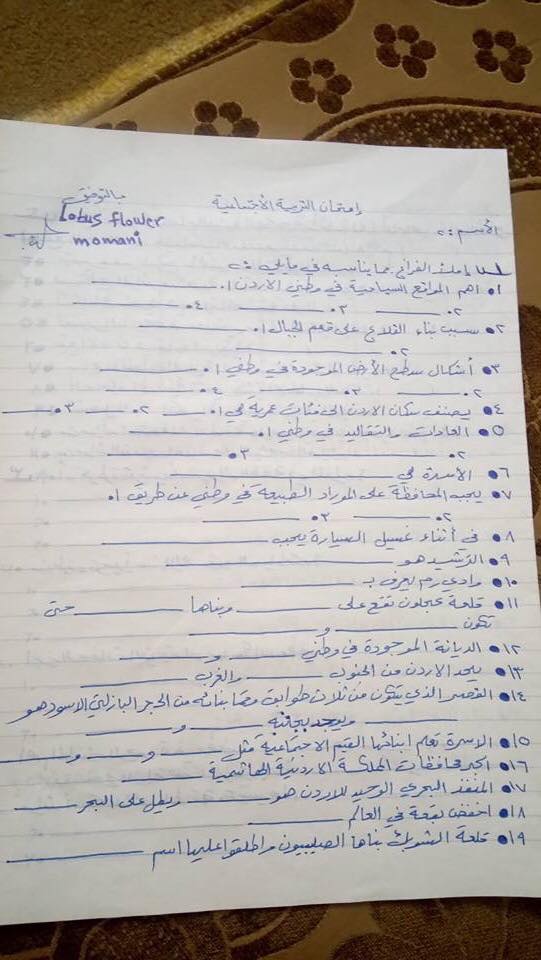 بالتوفيق
Lotus flower
momani
إمتحان التربية الاجتماعية
الأسم :
املأ الفراغ بما يناسبه في ما يلي :
١• اهم المواقع السياحية في وطني الاردن ١. ______
٢. ______ ٣. ______ ٤. ______
٢• سبب بناء القلاع على قمم الجبال ١. ______
٢. ______
٣• أشكال سطح الأرض الموجودة في وطني ١. ______
٢. ______ ٣. ______ ٤. ______
٤• يصنف سكان الاردن الى فئات عمرية هي ١. ____ ٢. ____ ٣. ____
٥• العادات والتقاليد في وطني ١. ______
٢. ______ ٣. ______
٦• الأسرة هي ______
٧• يجب المحافظة على الموراد الطبيعة في وطني عن طريق ١.
٢. ______ ٣. ______
٨• في أثناء غسيل السيارة يجب ______
٩• الترشيد هو ______
١٠• وادي رم يعرف بـ ______
١١• قلعة عجلون تقع على ______ وبناها ______ حتى
تكون ______ و ______
١٢• الديانة الموجودة في وطني ______ و ______
١٣• يحد الاردن من الجنوب ______ والغرب ______
١٤• القصر الذي يتكون من ثلاث طوابق وتم بنائه من الحجر البازلتي الاسود هو
______ ويوجد بجانبه ______ و ______
١٥• الاسرة تعلم ابنائها القيم الاجتماعية مثل ____ و ____ و ____
١٦• اكبر محافظات المملكة الاردنية الهاشمية ______
١٧• المنفذ البحري الوحيد للاردن هو ______ ويطل على البحر ____
١٨• اخفض بقعة في العالم ______
١٩• قلعة الشوبك بناها الصليبيون واطلقوا عليها اسم ______